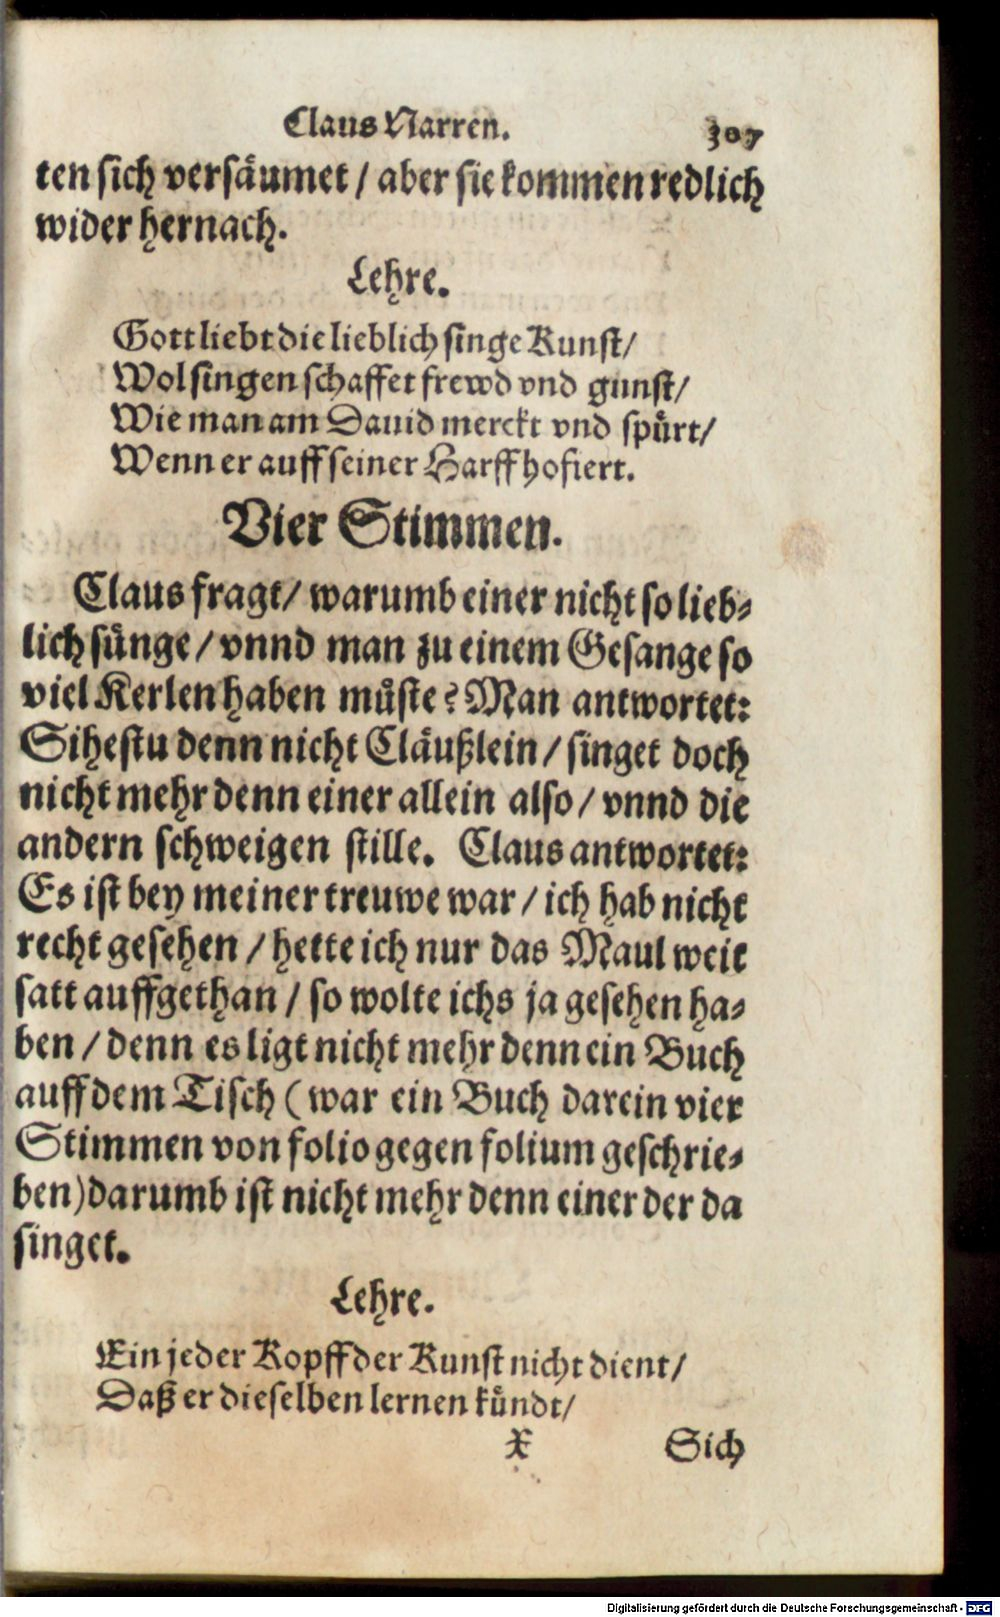 Claus Narren. 307
ten sich versäumet / aber sie kommen redlich
wider hernach.
Lehre.
Gott liebt die lieblich singe Kunst/
Wol singen schaffet frewd vnd gunst/
Wie man am Dauid merckt vnd spürt/
Wenn er auff seiner Harff hofiert.
Vier Stimmen.
Claus fragt/ warumb einer nicht so lieb-
lich sünge / vnnd man zu einem Gesange so
viel Kerlen haben müste? Man antwortet:
Sihestu denn nicht Cläußlein / singet doch
nicht mehr denn einer allein also / vnnd die
andern schweigen stille. Claus antwortet:
Es ist bey meiner treuwe war / ich hab nicht
recht gesehen / hette ich nur das Maul weit
satt auffgethan / so wolte ichs ja gesehen ha-
ben / denn es ligt nicht mehr denn ein Buch
auff dem Tisch ( war ein Buch darein vier
Stimmen von folio gegen folium geschrie-
ben) darumb ist nicht mehr denn einer der da
singet.
Lehre.
Ein jeder Kopff der Kunst nicht dient/
Daß er dieselben lernen kündt/
X Sich
Digitalisierung gefördert durch die Deutsche Forschungsgemeinschaft - DFG